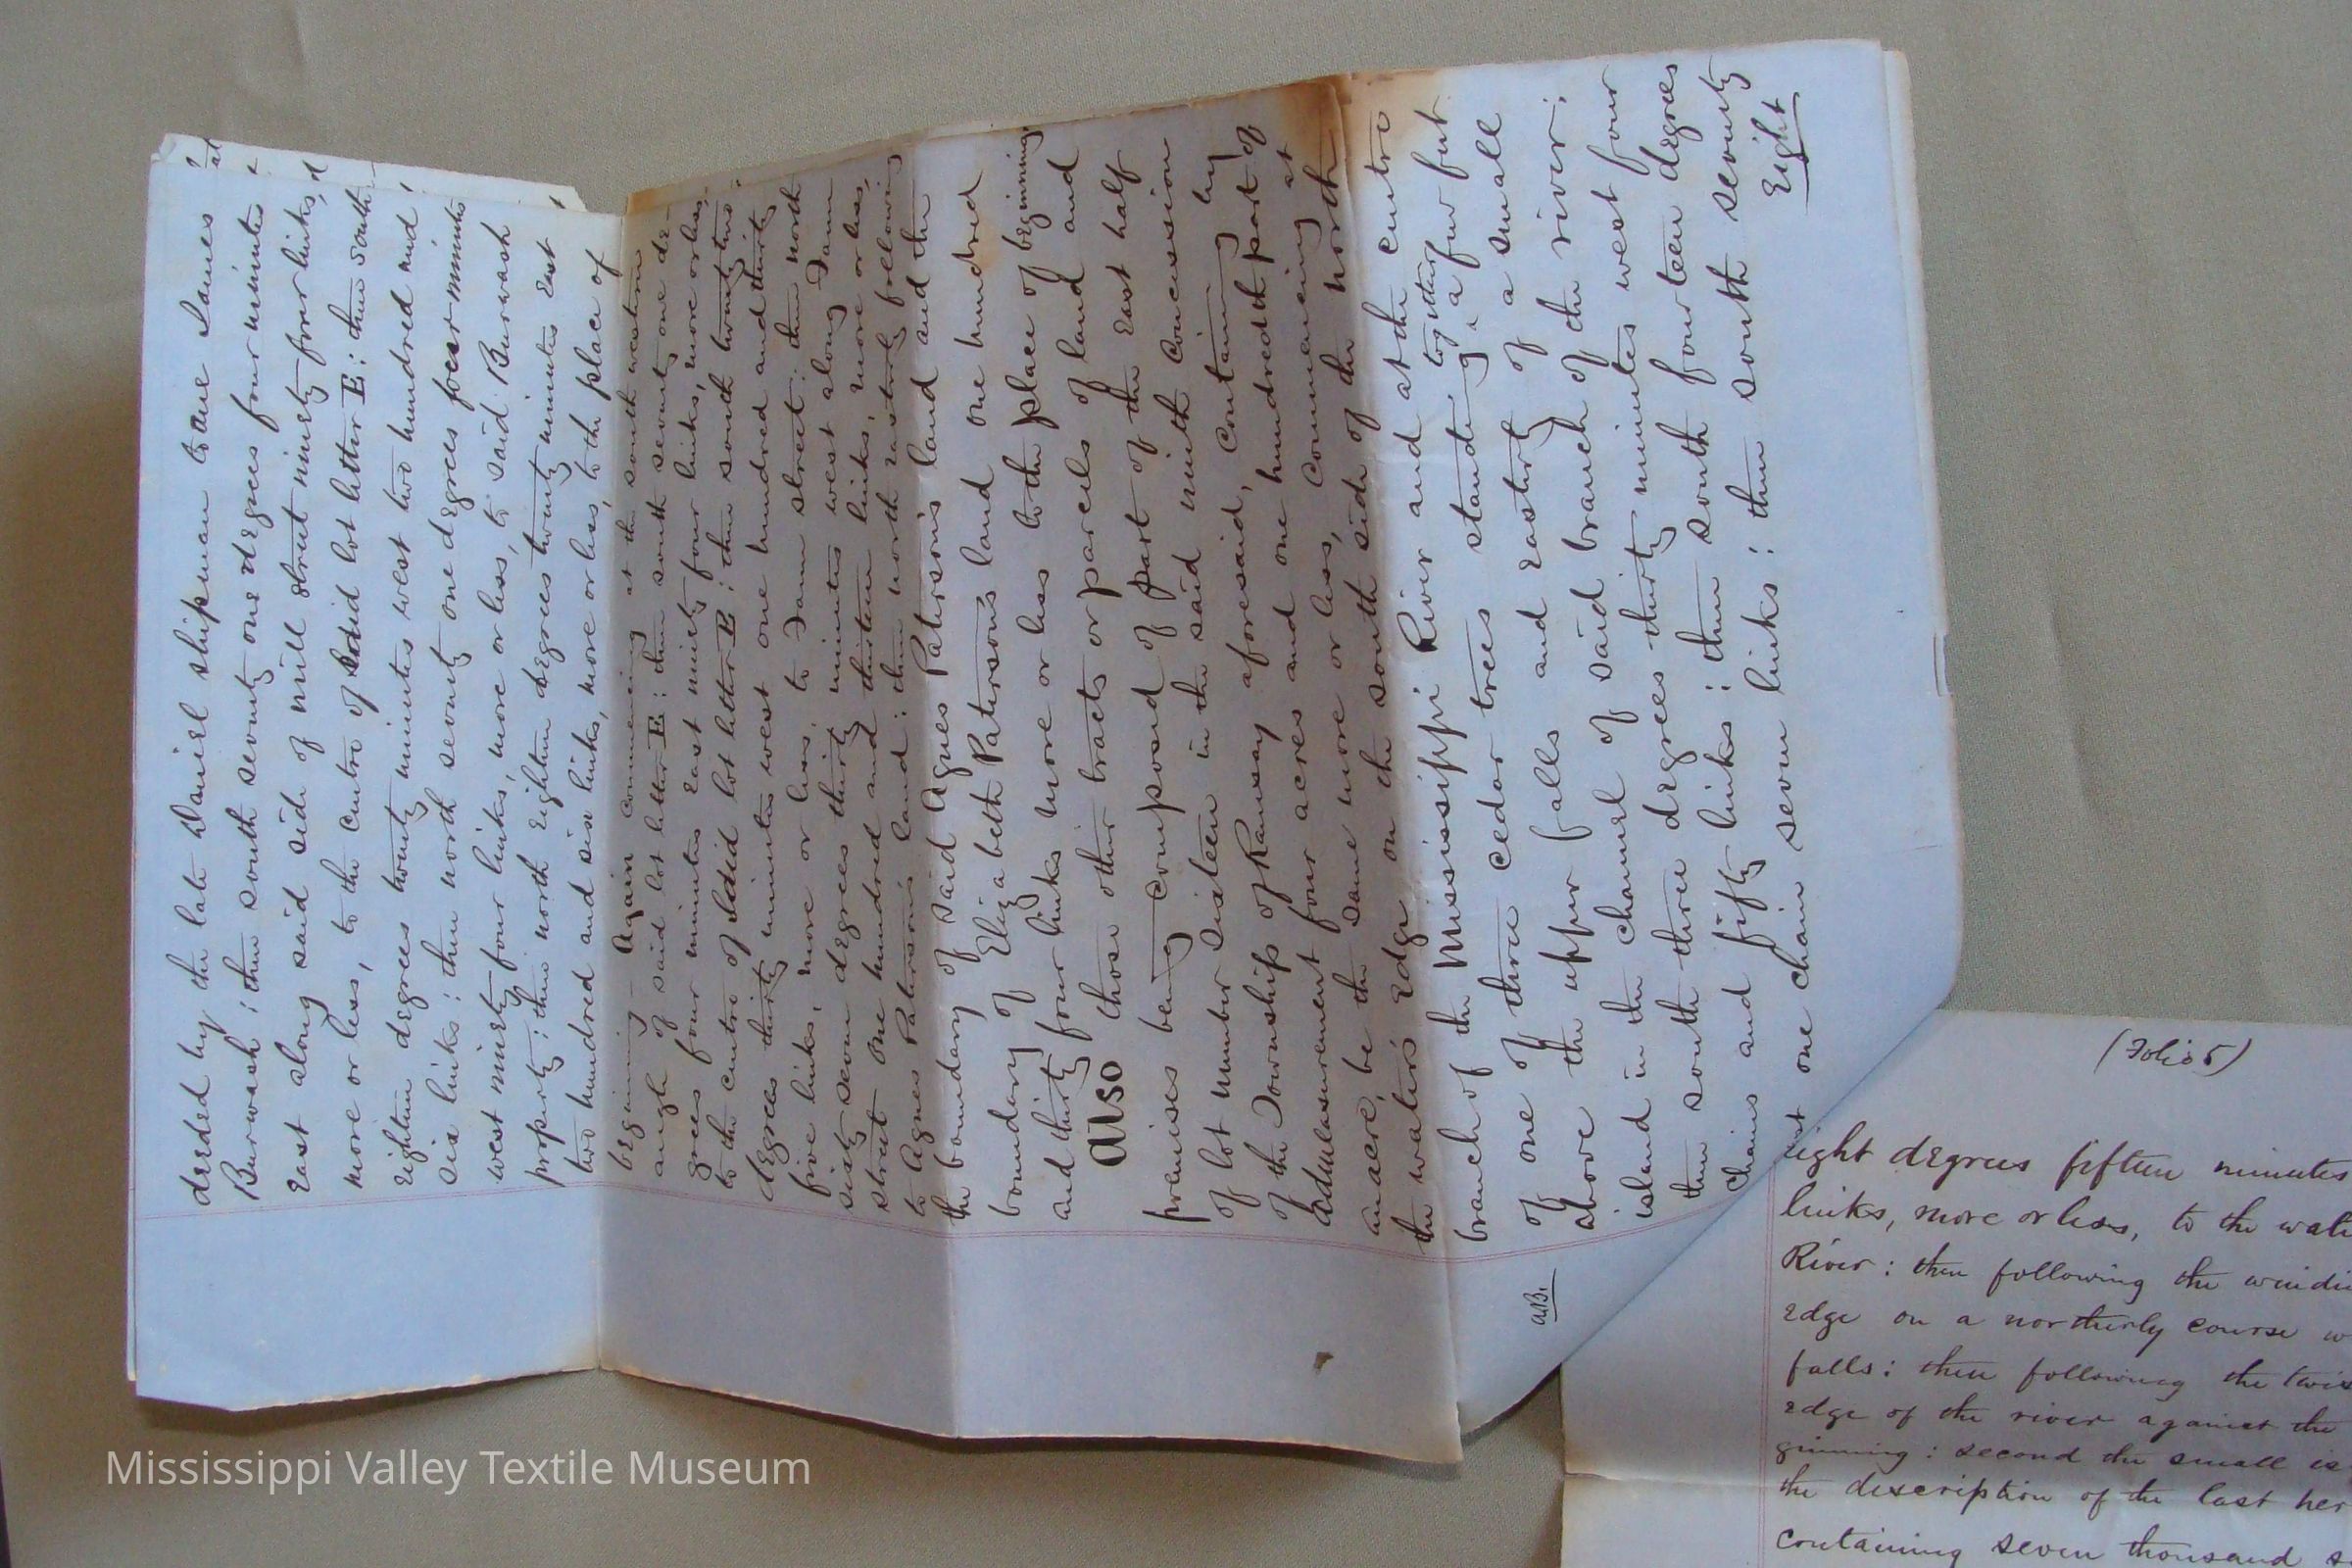 deeded by the late Daniel Shipman to one James
Burwash; then south seventy one degrees four minutes
East along said side of mill street ninety four links,
more or less, to the centre of said lot letter E: then south
Eighteen degrees twenty minutes west two hundred and
six links: then north seventy one degrees four minutes
west ninety four links, more or less, to said Burwash
property; then north Eighteen degrees twenty minutes East
two hundred and six links, more or less, to the place of
beginning – Again commencing at the south western
angle of said lot letter E: then south seventy one de-
grees four minutes East ninety four links, more or less,
to the centre of said lot letter E; then south twenty two
degrees thirty minutes west one hundred and thirty
five links, more or less, to Jane street: then north
sixty seven degrees thirty minutes west along Jane
street one hundred and thirteen links, more or less,
to Agnes Paterson's land: then north easterly following
the boundary of said Agnes Paterson's land and the
boundary of Elizabeth Paterson's land one hundred
and thirty four links more or less to the place of beginning.
Also those other tracts or parcels of land and
premises being composed of part of the East half
of lot number sixteen in the said ninth Concession
of the Township of Ramsay aforesaid, Containing by
admeasurement four acres and one hundredth part of
an acre, be the same more or less, Commencing at
the water's Edge on the south side of the north
branch of the Mississippi River and at the centre
of one of three cedar trees standing together a few feet
above the upper falls and easterly of a small
island in the channel of said branch of the river;
then south three degrees thirty minutes west four
Chains and fifty links: then south fourteen degrees
East one chain seven links: then south seventy
Eight
A.B.
(Folio 5)
eight degrees fifteen minutes
links, more or less, to the
River: then following the
edge on a northerly course
falls: then following the
edge of the river against the
ginning: second the small
the description of the last
containing seven thousand
Mississippi Valley Textile Museum